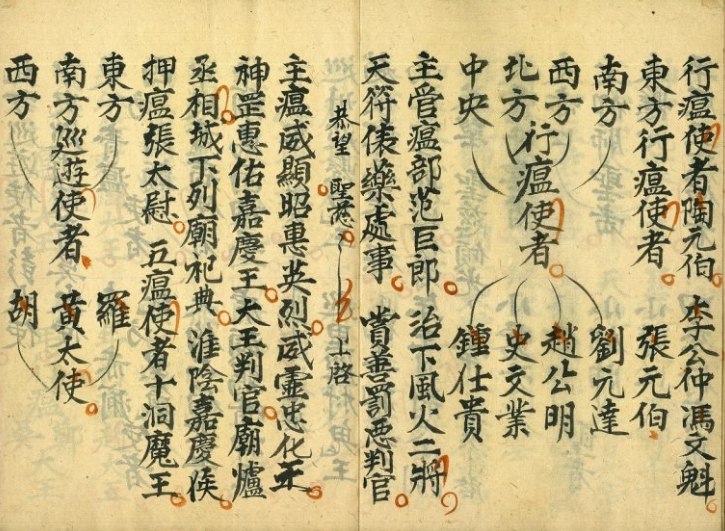 行瘟使者陶元伯 李公仲馮文魁
東方行瘟使者 張元伯
南方 劉元達
西方 趙公明
北方 行瘟使者 史文業
中央 鍾仕貴
主管瘟部范巨郎 治下風火二將
天符俵藥處事 賞善罰惡判官
恭望 聖慈 上啓
主瘟威顯昭惠英烈威靈忠化王
神罡惠佑嘉慶王大王判官廟爐
丞相城下列廟祀典 淮陰嘉慶侯
押瘟張太尉 五瘟使者十洞魔王
東方 羅
南方巡遊使者 黃太使
西方 胡